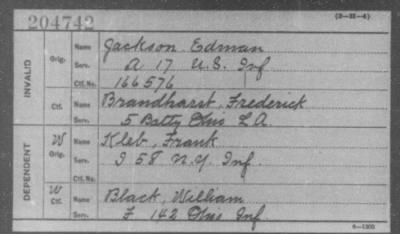 204742
(3-25-4)
INVALID
Orig.
Name Jackson, Edman
Serv. A 17 U.S. Inf
Ctf. No. 166576
Ctf.
Name Brandharst, Frederick
Serv. 5 Batty Ohio L.A.
DEPENDENT
W
Orig.
Name Kleb, Frank
Serv. I 58 N.Y. Inf.
Ctf. No.
W
Ctf.
Name Black, William
Serv. F 142 Ohio Inf